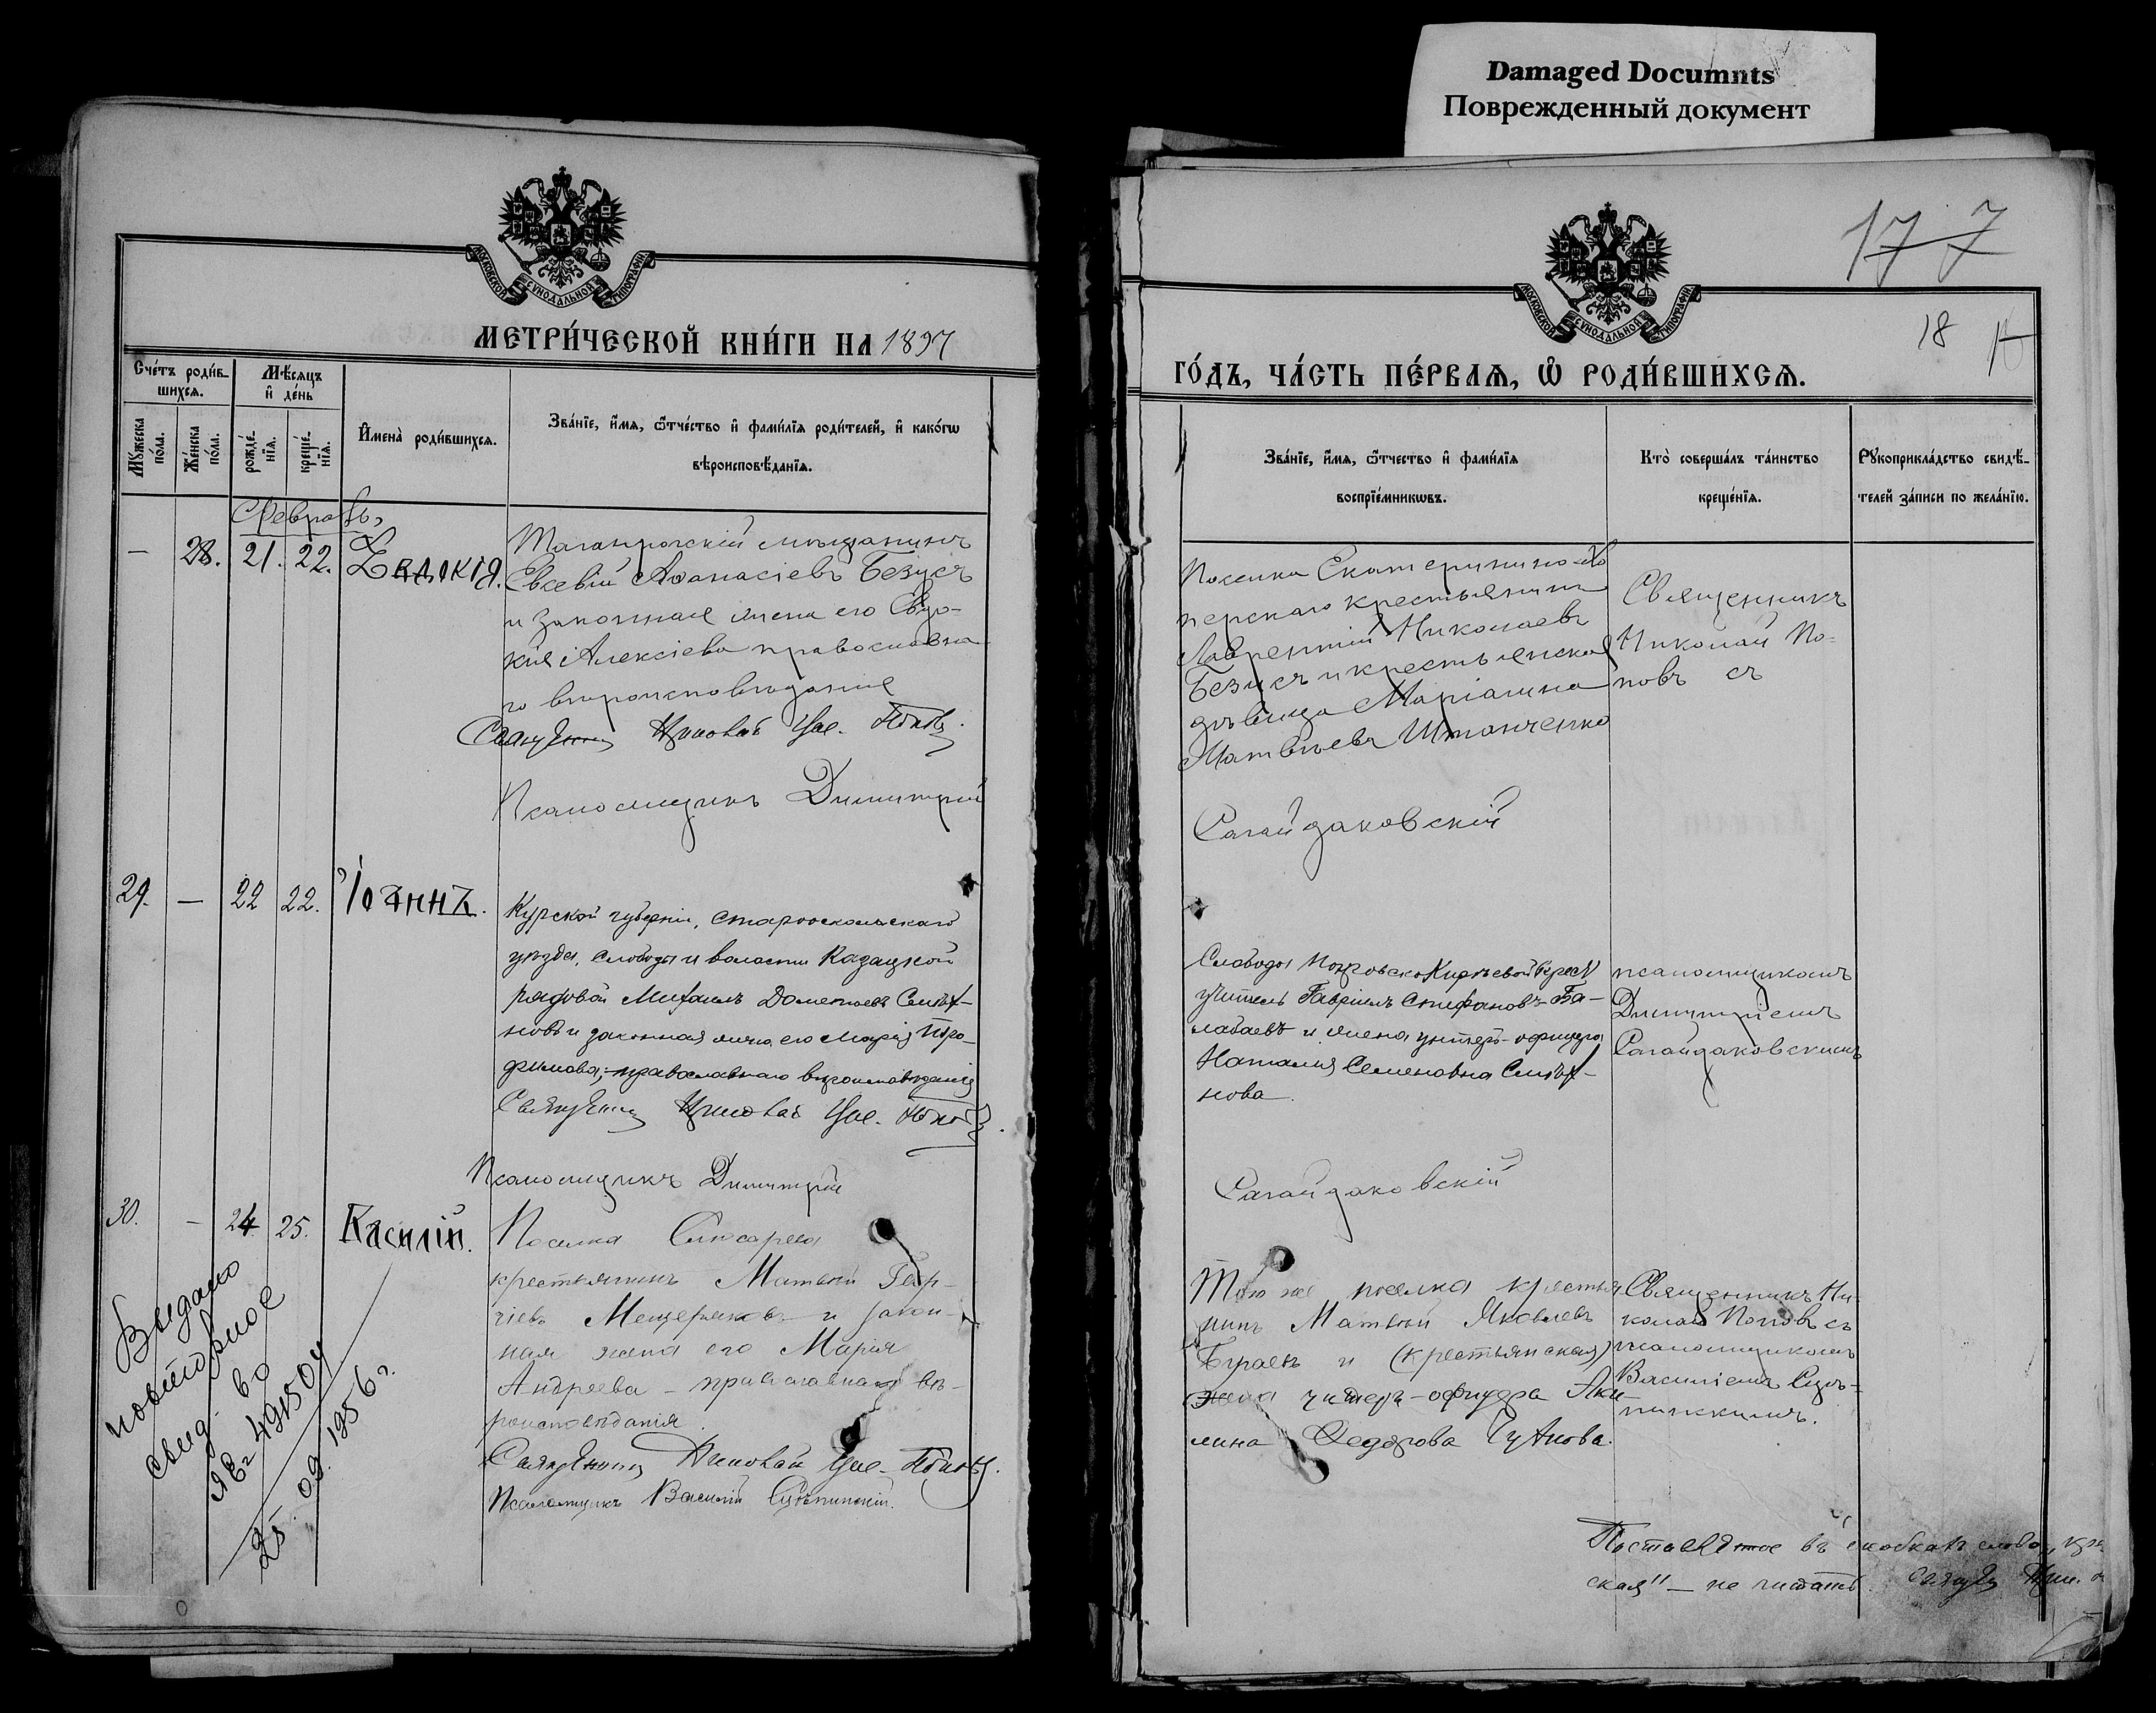 Damaged Documnts
Поврежденный документ
МОСКОВСКОЙ СУНОДАЛЬНОЙ ТИПОГРАФІИ
МЕТРИ́ЧЕСКОЙ КНИ́ГИ НА 1897
Сче́тъ роди́в-
шихся.
Мѣ́сяцъ
и҆ де́нь
Мꙋ́жеска по́ла.
Же́нска по́ла.
рожде́-
нїя.
креще́-
нїя.
И҆мена̀ роди́вшихся.
Зва́нїе, и҆́мя, ѻ҆́тчество и҆ фами́лїя роди́телей, и҆ како́гѡ
вѣроисповѣ́данїя.
Февраль
— 28. 21. 22. Евдокія.
Таганрогскій мѣщанинъ
Евсевій Аѳанасіевъ Безусъ
и законная жена его Евдо-
кія Алексіева православна-
го вѣроисповѣданія
Священникъ Николай Поповъ.
Псаломщикъ Димитрий
29. — 22 22. Іоаннъ.
Курской губерніи, Старооскольскаго
уѣзда, слободы и волости Казацкой
рядовой Михаилъ Дометіевъ
новъ и законная жена его Марія Тро-
фимова, православнаго вѣроисповѣданія
Священникъ Николай Поповъ.
Псаломщикъ Димитрій
30. — 24. 25. Василій.
Поселка Слюсарева
крестьянинъ Матвѣй Геор-
гіевъ Мещеряковъ и закон-
ная жена его Марія
Андреева — православнаго вѣ-
роисповѣданія.
Священникъ Николай Поповъ.
Псаломщикъ Василій
Выдано
повторное
свид-во
ЯЕ 2 491504
25. 09. 1956 г.
177
МОСКОВСКОЙ СУНОДАЛЬНОЙ ТИПОГРАФІИ
18
ГО́ДЪ, ЧА́СТЬ ПЕ́РВАЯ, Ѡ҆ РОДИ́ВШИХСЯ.
Зва́нїе, и҆́мя, ѻ҆́тчество и҆ фами́лїя
воспрїе́мникѡвъ.
Кто̀ соверша́лъ та́инство
креще́нїя.
Рꙋкоприкла́дство свидѣ́-
телей за́писи по жела́нїю.
Поселка Екатеринино-Хо
перскаго крестьянинъ
Лаврентій Николаевъ
Безусъ и крестьянская
дѣвица Маріанна
Матвѣева Штанченко
Священникъ
Николай По-
повъ съ
Сагайдаковскій
Слободы
учитель Гавріилъ Стефановъ Ба-
лабаевъ и жена унтеръ-офицера
Наталія Семеновна
нова.
псаломщикомъ
Димитріемъ
Сагайдаковскимъ
Сагайдаковскій
Того же поселка крестья
нинъ Матвѣй Яковлевъ
и (крестьянская)
жена унтеръ-офицера Аки-
лина Федорова
Священникъ Ни-
колай Поповъ съ
псаломщикомъ
Василіемъ
Поставленное въ скобкахъ слово
ская" — не читать.